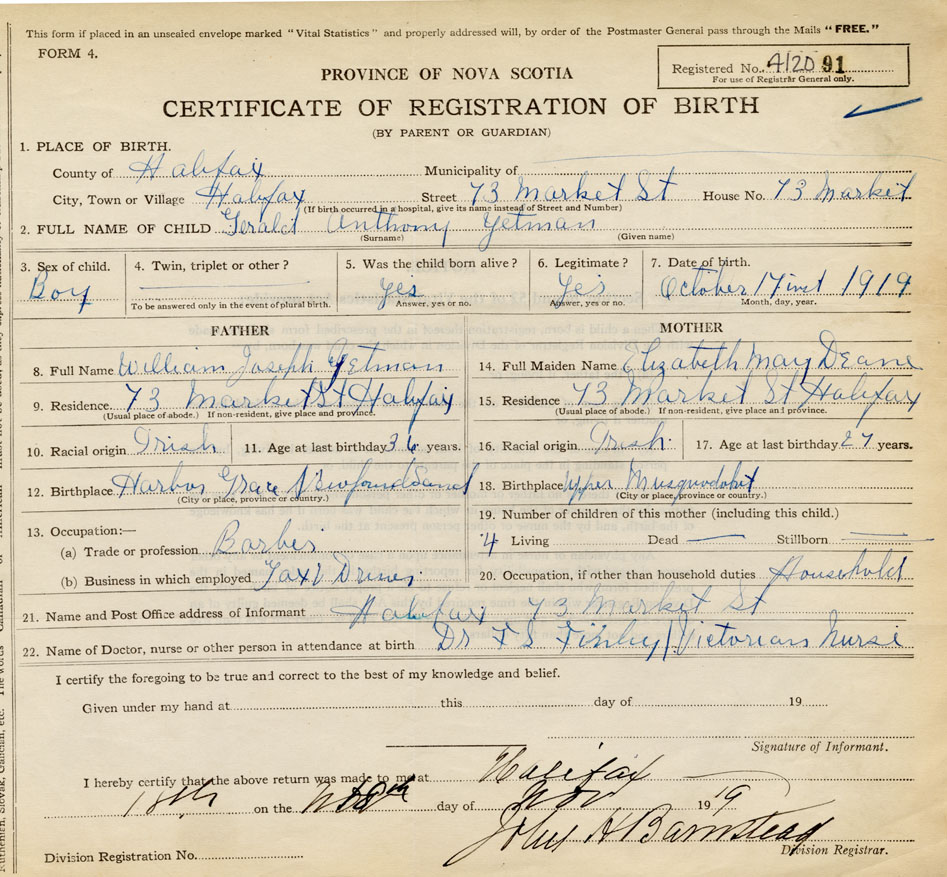 This form if placed in an unsealed envelope marked "Vital Statistics" and properly addressed will, by order of the Postmaster General pass through the Mails "FREE."
FORM 4.
Registered No. 4120 91
For use of Registrar General only.
PROVINCE OF NOVA SCOTIA
CERTIFICATE OF REGISTRATION OF BIRTH
(BY PARENT OR GUARDIAN)
1. PLACE OF BIRTH.
County of Halifax Municipality of
City, Town or Village Halifax Street 73 Market St House No. 73 Market
(If birth occurred in a hospital, give its name instead of Street and Number)
2. FULL NAME OF CHILD Gerald Anthony Yetman
(Surname) (Given name)
3. Sex of child. 4. Twin, triplet or other? 5. Was the child born alive? 6. Legitimate? 7. Date of birth.
Boy Yes Yes October 17 inst 1919
To be answered only in the event of plural birth. Answer, yes or no. Answer, yes or no. Month, day, year.
FATHER MOTHER
8. Full Name William Joseph Yetman 14. Full Maiden Name Elizabeth May Deane
9. Residence 73 Market St Halifax 15. Residence 73 Market St Halifax
(Usual place of abode.) If non-resident, give place and province. (Usual place of abode.) If non-resident, give place and province.
10. Racial origin Irish 11. Age at last birthday 36 years. 16. Racial origin Irish 17. Age at last birthday 27 years.
12. Birthplace Harbor Grace Newfoundland 18. Birthplace Upper Musquodobit
(City or place, province or country.) (City or place, province or country.)
13. Occupation:— 19. Number of children of this mother (including this child.)
(a) Trade or profession Barber 4 Living Dead Stillborn
(b) Business in which employed Taxi Driver 20. Occupation, if other than household duties Household
21. Name and Post Office address of Informant Halifax 73 Market St
22. Name of Doctor, nurse or other person in attendance at birth Dr F S Finley / Victorian Nurse
I certify the foregoing to be true and correct to the best of my knowledge and belief.
Given under my hand at this day of 19
Signature of Informant.
I hereby certify that the above return was made to me at Halifax
18th on the day of Nov 1919
John H Barnstead
Division Registration No. Division Registrar.